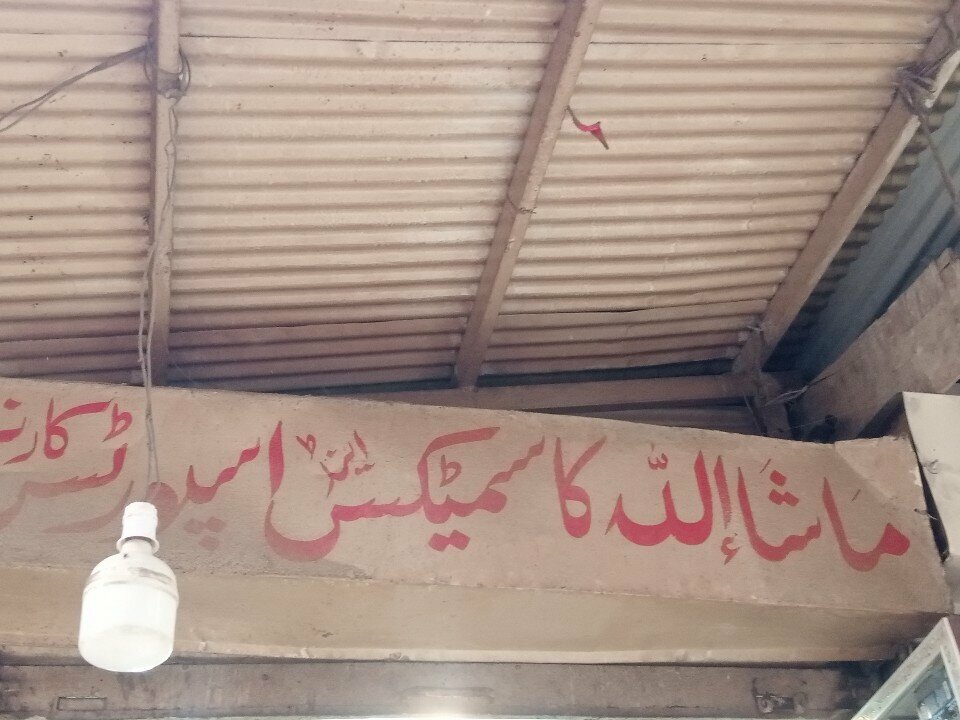 ماشاءاللہ کاسمیٹکس اینڈ امپورٹس کارنر